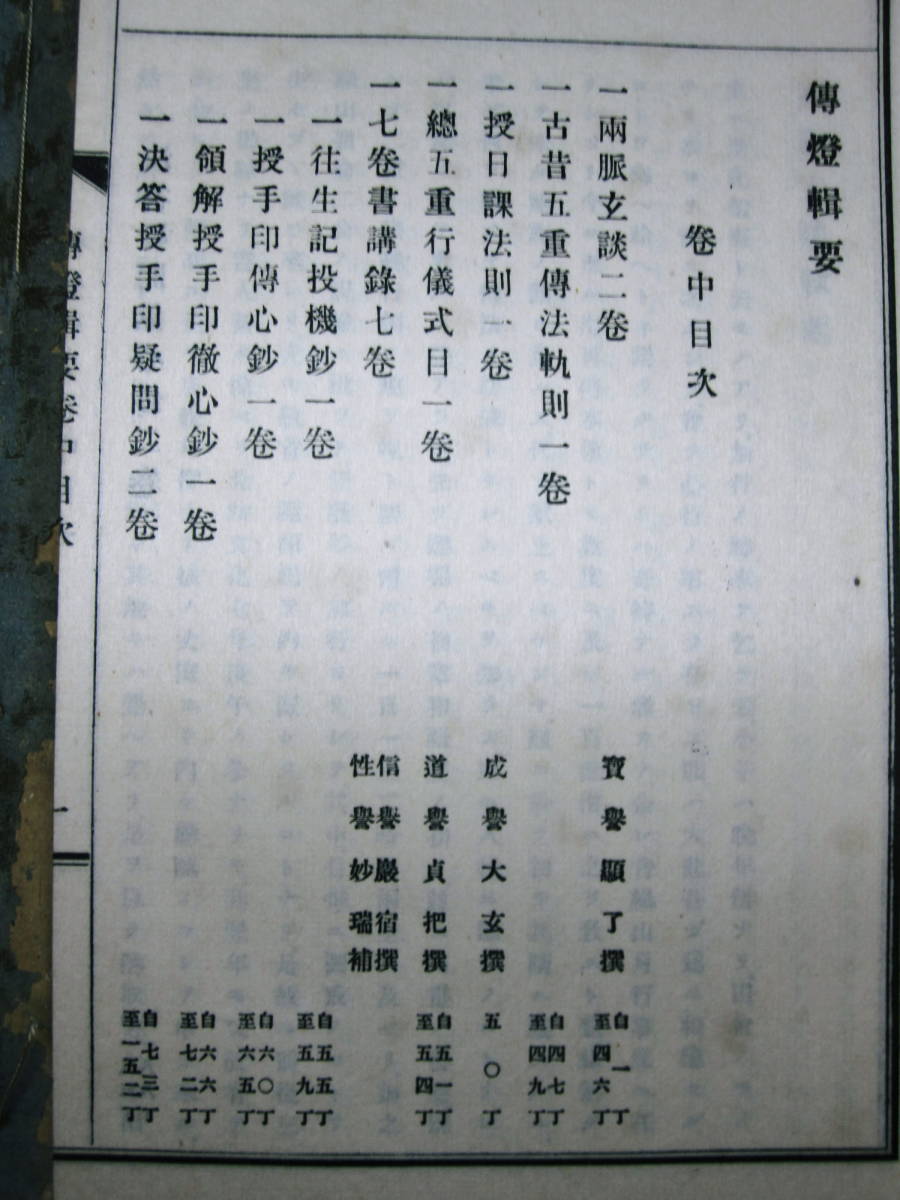 傳燈輯要
卷中目次
一兩脈玄談二卷 寶譽顯了撰 自一丁 至四六丁
一古昔五重傳法軌則一卷 自四七丁 至四九丁
一授日課法則一卷 成譽大玄撰 五〇丁
一總五重行儀式目一卷 道譽貞把撰 自五一丁 至五四丁
一七卷書講錄七卷 信譽巖宿撰 性譽妙瑞補
一往生記投機鈔一卷 自五五丁 至五九丁
一授手印傳心鈔一卷 自六〇丁 至六五丁
一領解授手印徹心鈔一卷 自六六丁 至七二丁
一決答授手印疑問鈔二卷 自七三丁 至一五二丁
傳燈輯要卷中目次
一